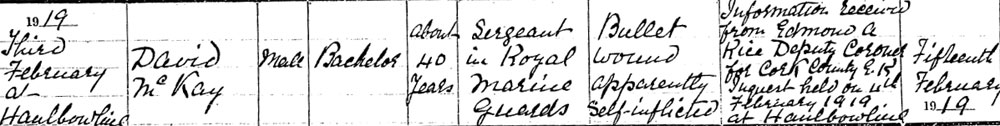 1919
Third
February
at
Haulbowline
David
McKay
Male
Bachelor
about
40
Years
Sergeant
in Royal
Marine
Guards
Bullet
wound
apparently
Self-inflicted
Information received
from Edmond A
Rice Deputy Coroner
for Cork County E.R
Inquest held on 4th
February 1919
at Haulbowline
Fifteenth
February
1919